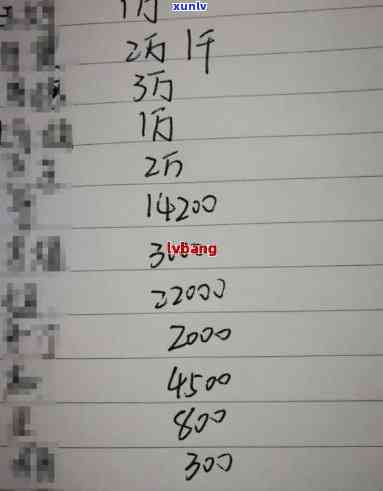 xunlv
1万
2万1千
3万
1万
2万
14200
lvbang
22000
2000
4500
800
300